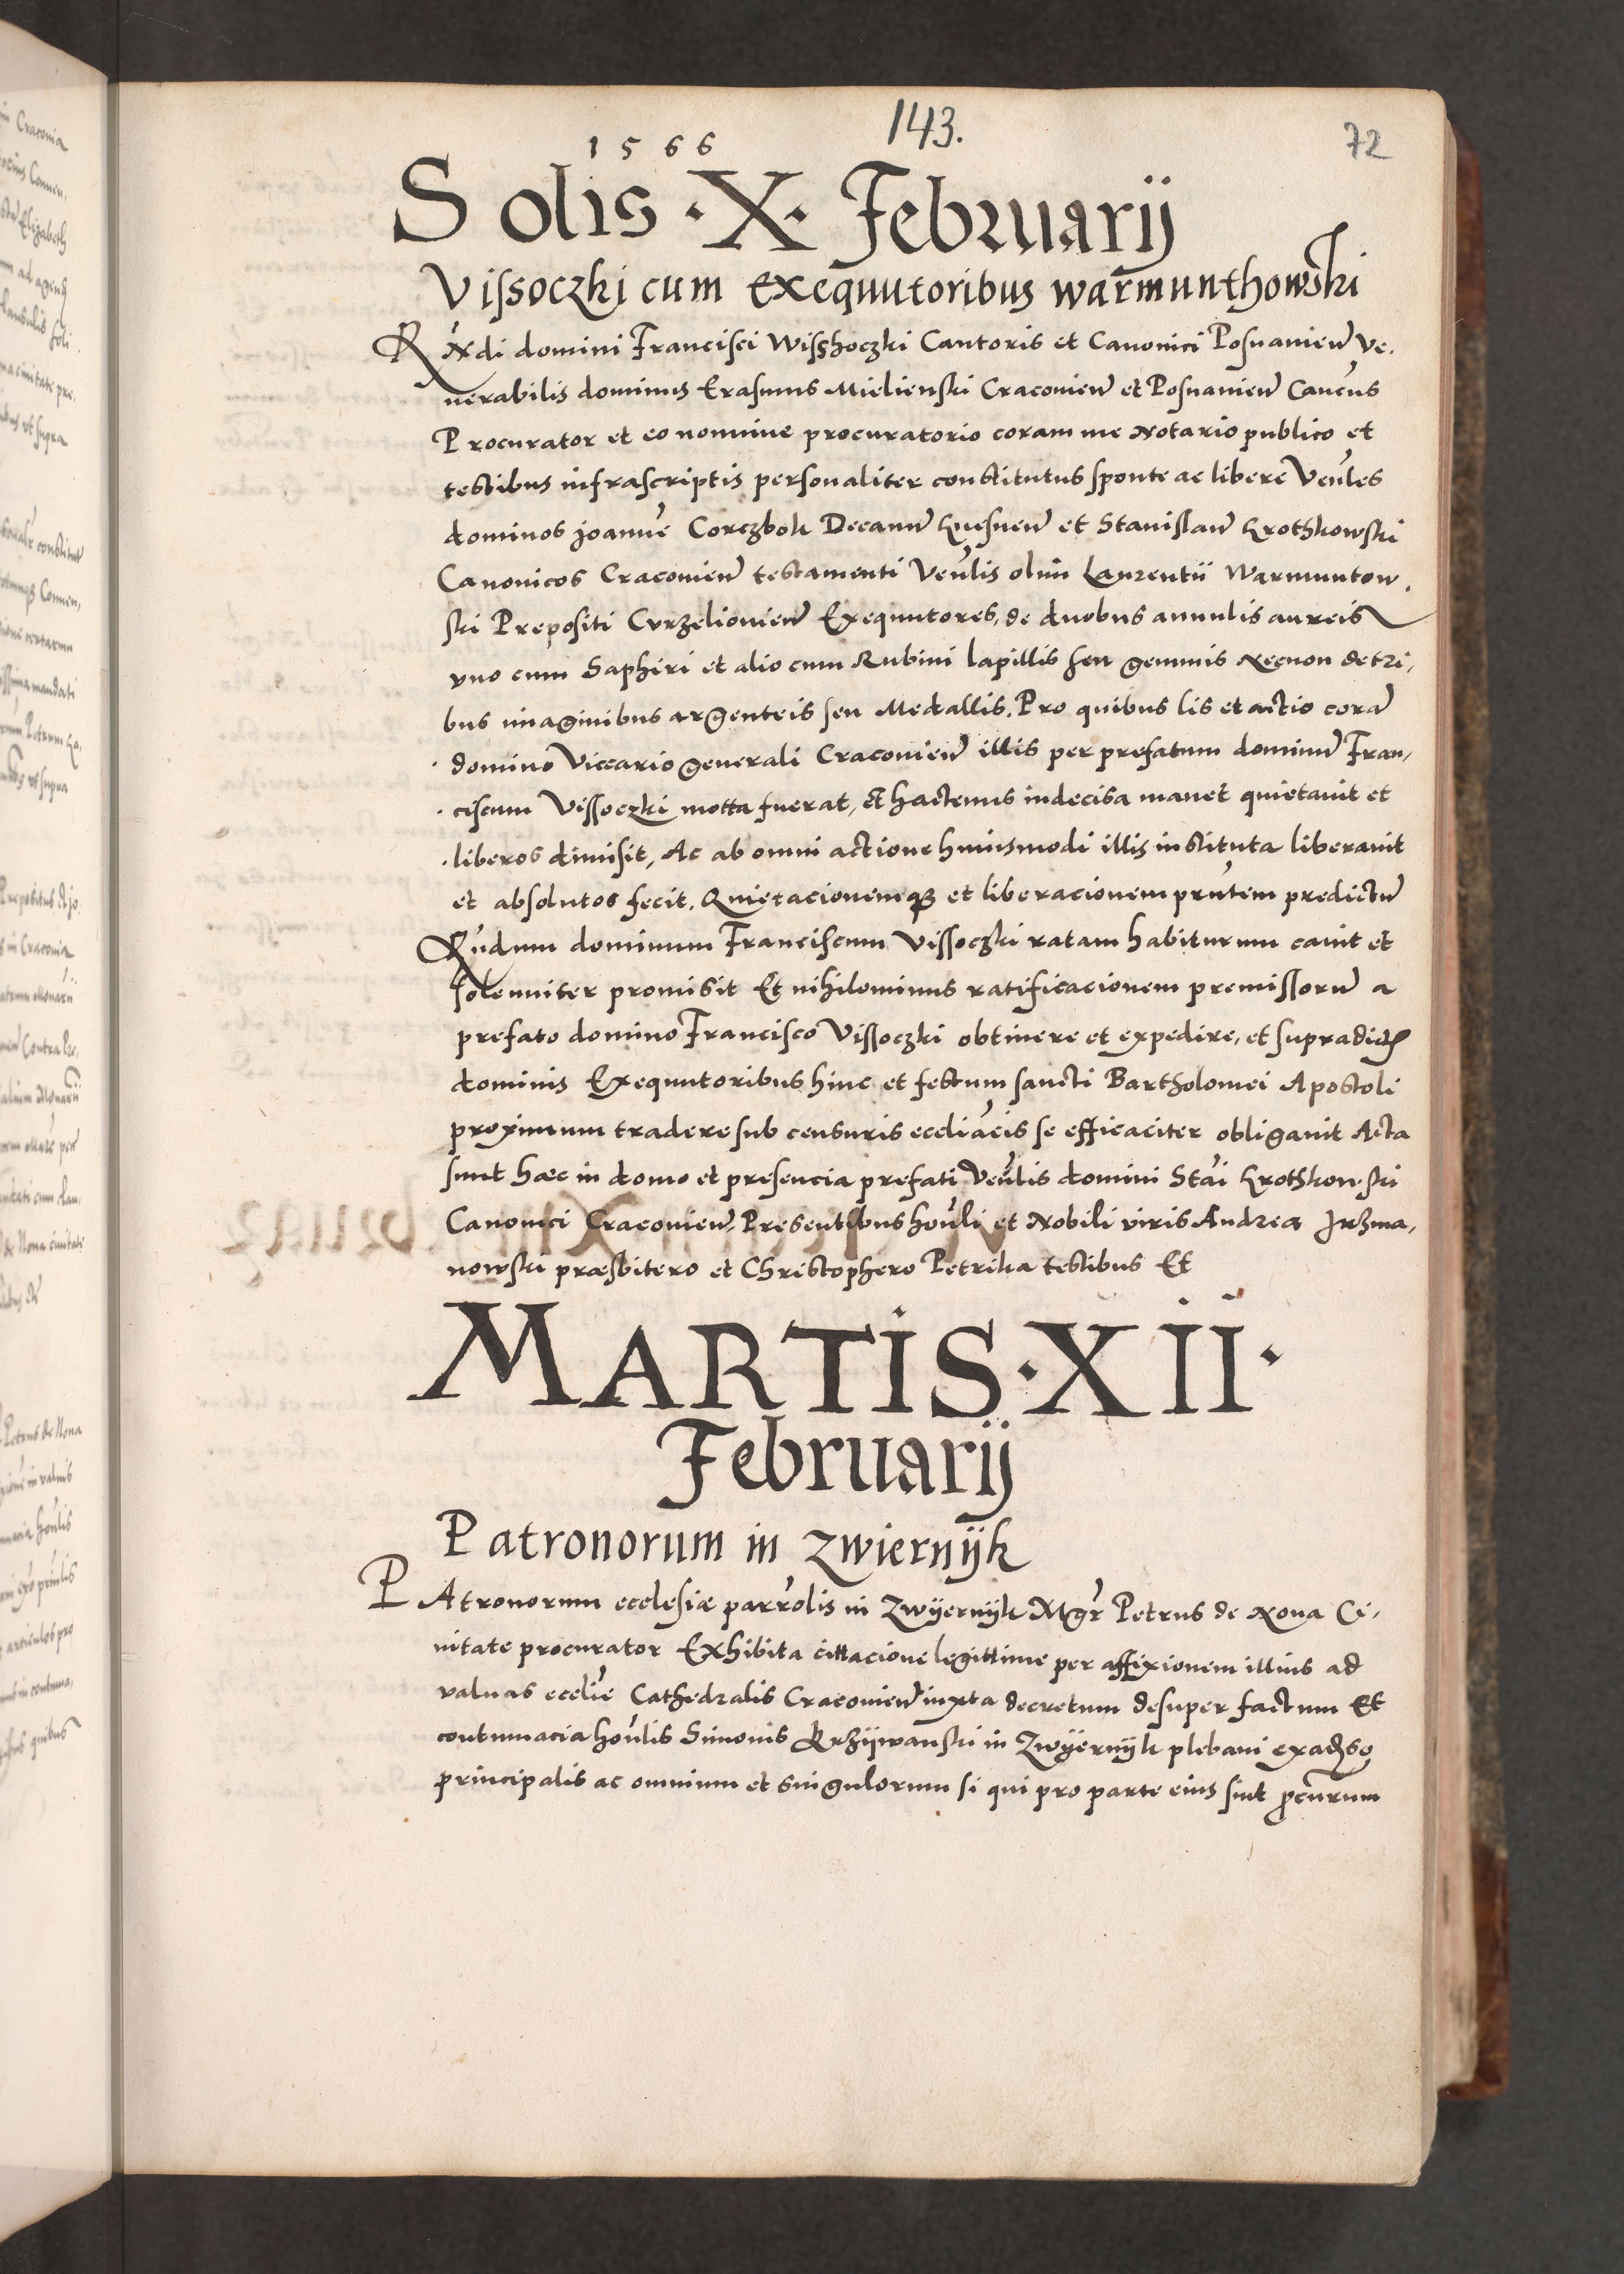 143.
72
1566
Solis · X · Februarij
Vissoczki cum Exequutoribus warmunthowski
R Ndi domini Francisci Wisshoczki Cantoris et Canonici Posnanien Ve,
nerabilis dominus Erasmus Mielienski Craconien et Posnanien Cancus
Procurator et eo nomine procuratorio coram me Notario publico et
testibus infrascriptis personaliter constitutus sponte ac libere Venles
dominos joanne Corczbok Decanu Gnesnen et Stanislau Krothkowski
Canonicos Craconien testamenti Venlis olim Laurentii Warmuntow,
ski Prepositi Curzelionien Exequutores, de duobus annulis aureis
vno cum Saphiri et alio cum Rubini lapillis seu gemmis Necnon de tri,
bus imaginibus argenteis seu Medallis. Pro quibus lis et actio cora
domino Viccario generali Craconien illis per prefatum dominu Fran,
ciscum Vissoczki motta fuerat, et hactenus indecisa manet quietauit et
liberos dimisit, Ac ab omni actione huiusmodi illis instituta liberauit
et absolutos fecit. Quietacionemq et liberacionem prntem predictu
Rndum dominum Franciscum Vissoczki ratam habiturum cauit et
solenniter promisit Et nihilominus ratificacionem premissoru a
prefato domino Francisco Vissoczki obtinere et expedire, et supradictis
dominis Exequutoribus hinc et festum sancti Bartholomei Apostoli
proximum tradere sub censuris eccliacis se efficaciter obligauit Acta
sunt haec in domo et presencia prefati Venlis domini Stai Krothkowski
Canonici Craconien. Presentibus honli et Nobili viris Andrea Jrzma,
nowski praesbitero et Christophero Petrika testibus Et
MARTIS · XII ·
Februarij
Patronorum in Zwiernijk
PAtronorum ecclesiæ parrolis in Zwijernijk Mgr Petrus de Noua Ci,
uitate procurator Exhibita cittacione legittime per affixionem illius ad
valuas ecclie Cathedralis Craconien iuxta decretum desuper factum Et
contumacia honlis Simonis Krzijwanski in Zwijernijk plebani ex adso
principalis ac omnium et singulorum si qui pro parte eius sint pcurum